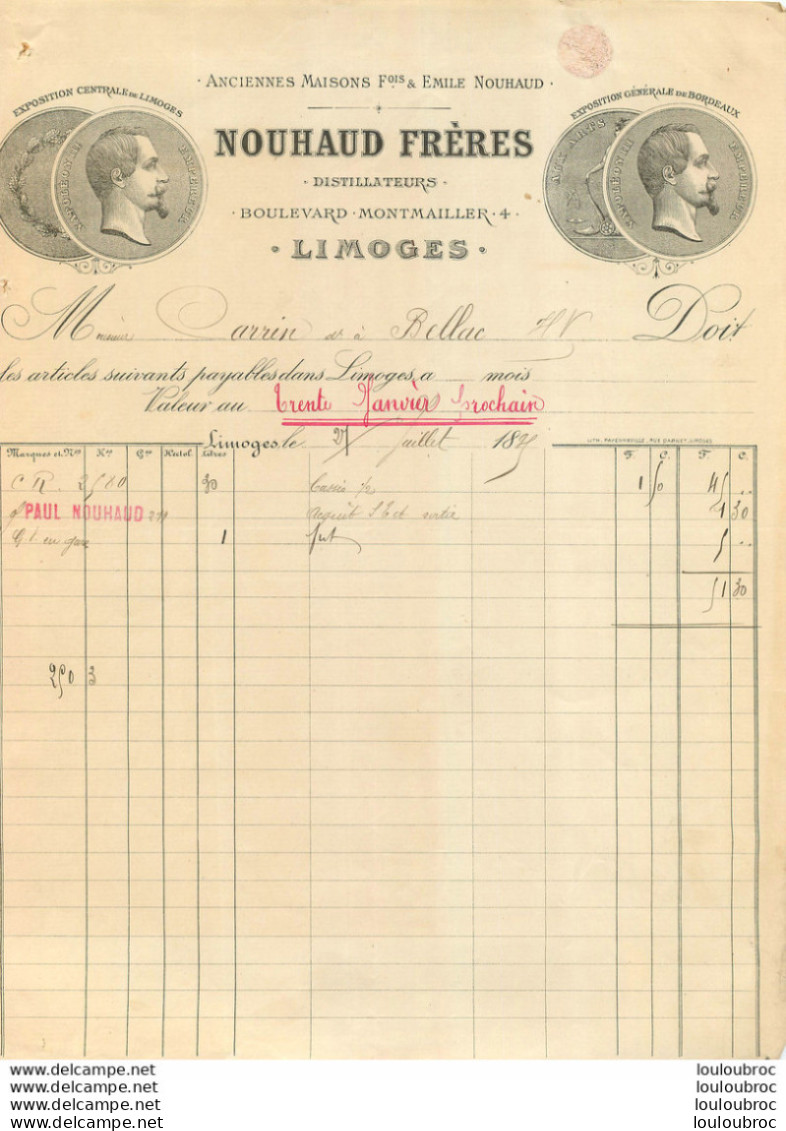 · Anciennes Maisons Fois & Emile Nouhaud ·
EXPOSITION CENTRALE DE LIMOGES
NAPOLEON III EMPEREUR
EXPOSITION GÉNÉRALE DE BORDEAUX
AUX ARTS
NAPOLEON III EMPEREUR
NOUHAUD FRÈRES
· DISTILLATEURS ·
· BOULEVARD · MONTMAILLER · 4 ·
· LIMOGES ·
Monsieur Carrin à Bellac HV Doit
les articles suivants payables dans Limoges, a mois
Valeur au trente Janvier prochain
Limoges, le 25 Juillet 18
LITH. RUE DARNET, LIMOGES
Marques et Nos Kos Ges Hectol. Litres F. C. F. C.
C R 2580 30 Cassis 1/2 1 50 45 ..
PAUL NOUHAUD acquit et sortie 1 30
en gare 1 fut 5 ..
51 30
250 3
www.delcampe.net louloubroc
www.delcampe.net louloubroc
www.delcampe.net louloubroc
www.delcampe.net louloubroc